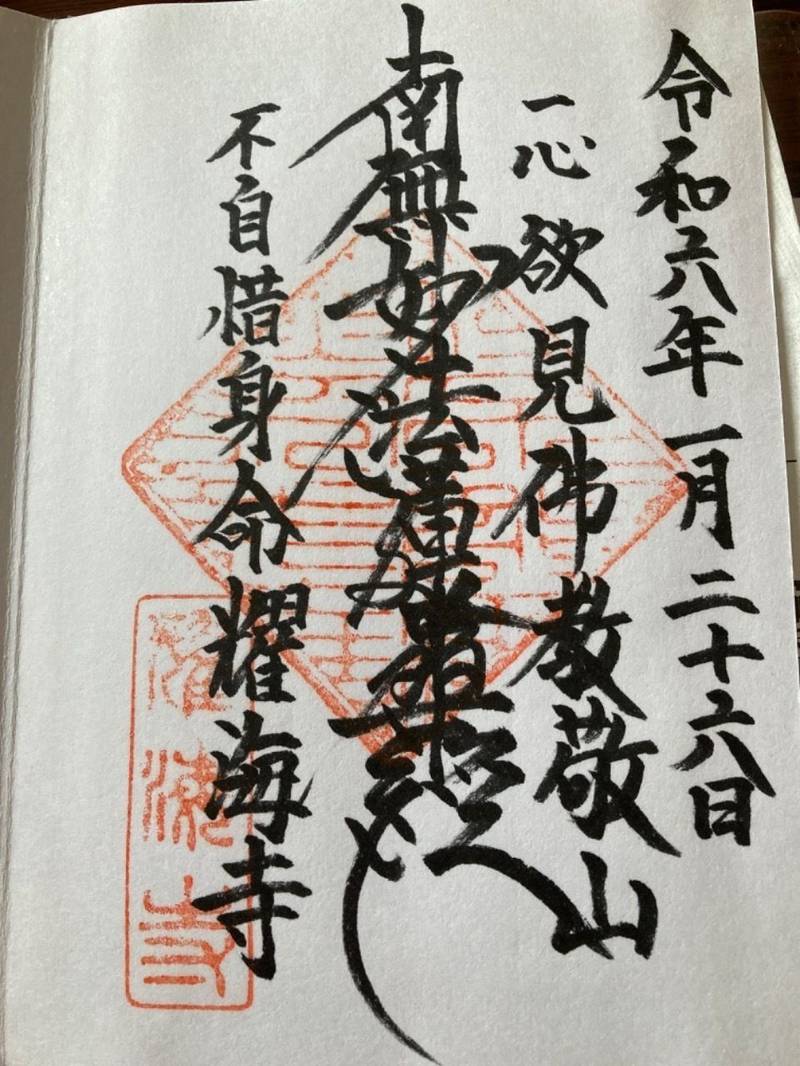 令和六年一月二十六日
一心欲見佛教敬山
南無妙法蓮華経
不自惜身命耀海寺